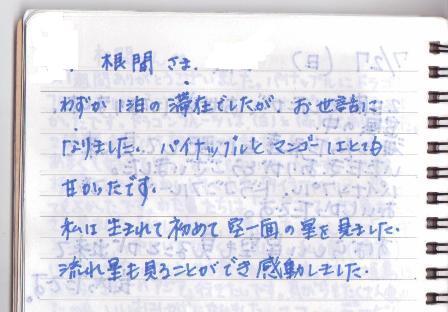 根間 さま.
わずか 1泊の 滞在でしたが、お世話に
なりました. パイナップルと マンゴーはとても
甘かったです.
私は 生まれて 初めて 空一面の 星を 見ました.
流れ星も見ることができ 感動しました.
7/27 (日)